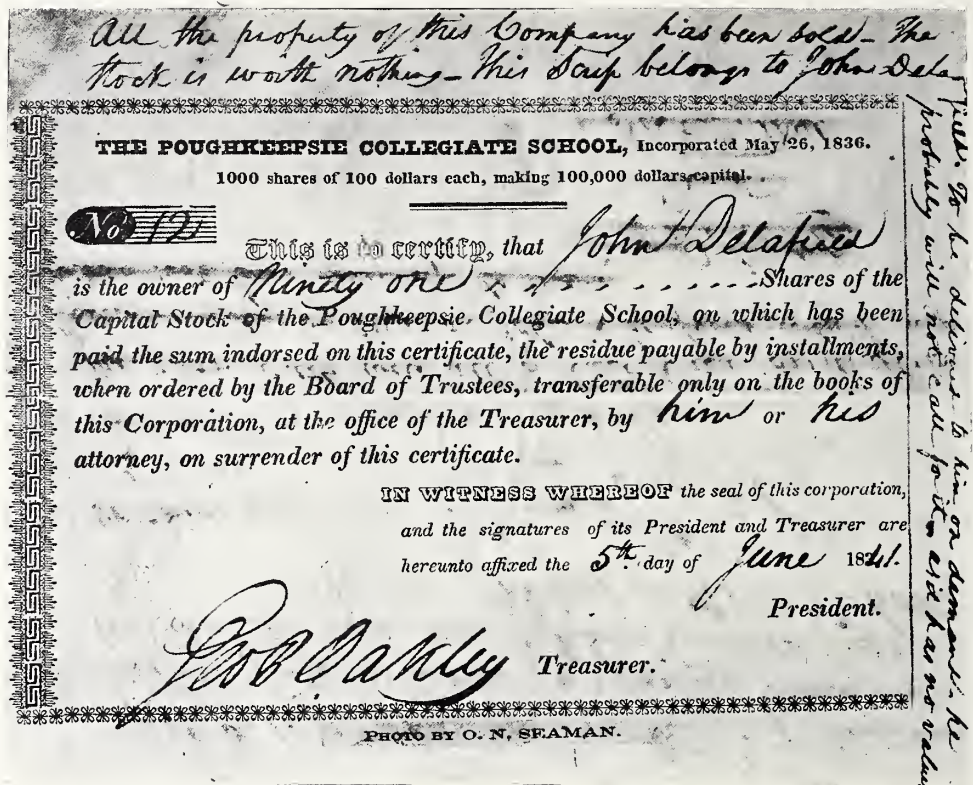 All the property of this Company has been sold – The
Stock is worth nothing – This Scrip belongs to John Dela
field. To be delivered to him on demand – he
probably will not call for it as it has no value
THE POUGHKEEPSIE COLLEGIATE SCHOOL, Incorporated May 26, 1836.
1000 shares of 100 dollars each, making 100,000 dollars capital.
No 12
This is to certify, that John Delafield
is the owner of Ninety one Shares of the
Capital Stock of the Poughkeepsie Collegiate School, on which has been
paid the sum indorsed on this certificate, the residue payable by installments,
when ordered by the Board of Trustees, transferable only on the books of
this Corporation, at the office of the Treasurer, by him or his
attorney, on surrender of this certificate.
IN WITNESS WHEREOF the seal of this corporation,
and the signatures of its President and Treasurer are
hereunto affixed the 5th day of June 1841.
President.
Oakley Treasurer.
PHOTO BY O. N. SEAMAN.